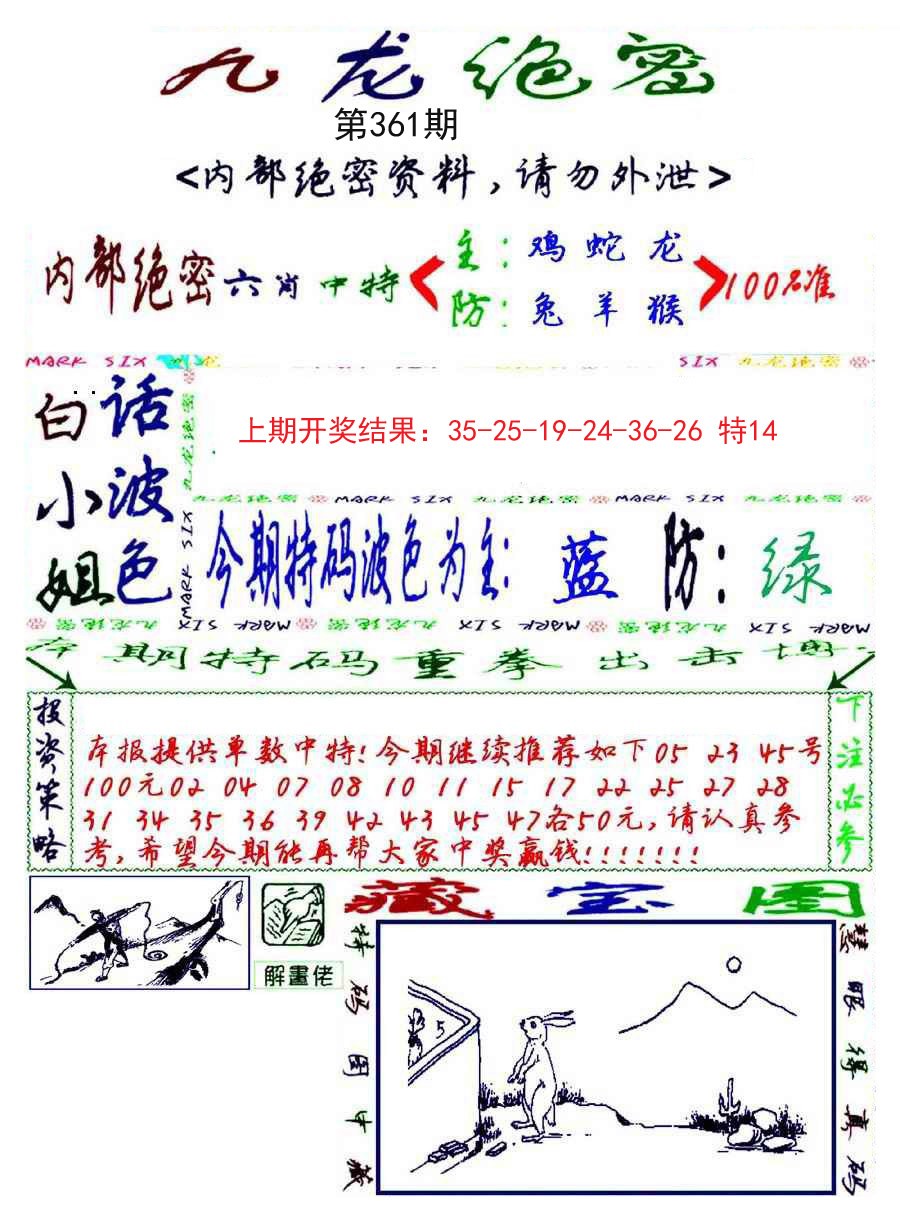 九龙绝密
第361期
<内部绝密资料,请勿外泄>
内部绝密六肖中特
主:鸡蛇龙
防:兔羊猴
100%准
MARK SIX 九龙 SIX 九龙绝密
白小姐
话波色
九龙绝密 MARK SIX
上期开奖结果：35-25-19-24-36-26 特14
九龙绝密 MARK SIX 九龙绝密 MARK SIX 九龙绝密
今期特码波色为主: 蓝 防: 绿
九龙绝密 MARK SIX 九龙绝密 MARK SIX 九龙绝密 MARK SIX
本期特码重拳出击
投资策略
本报提供单数中特!今期继续推荐如下05 23 45号
100元02 04 07 08 10 11 15 17 22 25 27 28
31 34 35 36 39 42 43 45 47各50元,请认真参
考,希望今期能再帮大家中奖赢钱!!!!!!!
下注必参
解畫佬
藏宝图
特码图中藏
5
慧眼得真码